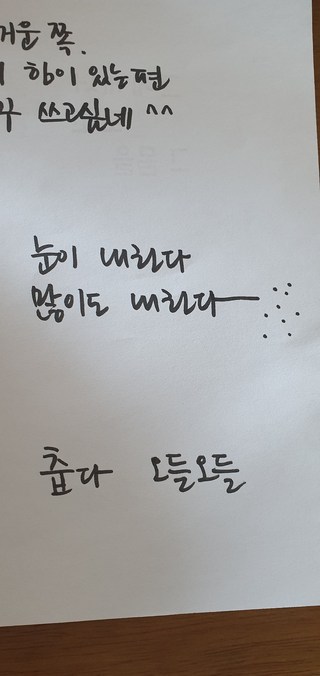 거운 쪽.
히 향이 있는편
쓰고싶네 ^^
눈이 내린다
많이도 내린다
춥다 오들오들